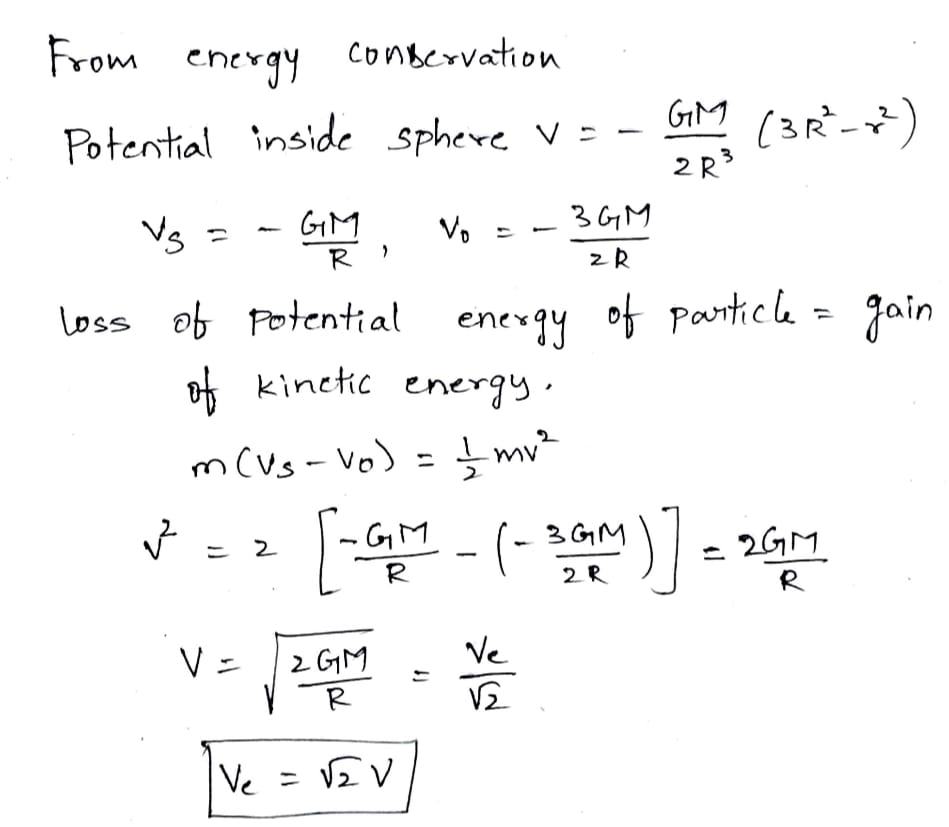 From energy conservation
Potential inside sphere V = - GM/2R³ (3R² - r²)
Vs = - GM/R , Vo = - 3GM/2R
loss of potential energy of particle = gain
of kinetic energy.
m(Vs - Vo) = 1/2 mv²
v² = 2 [-GM/R - (- 3GM/2R)] = 2GM/R
V = √(2GM/R) = Ve/√2
Ve = √2 V